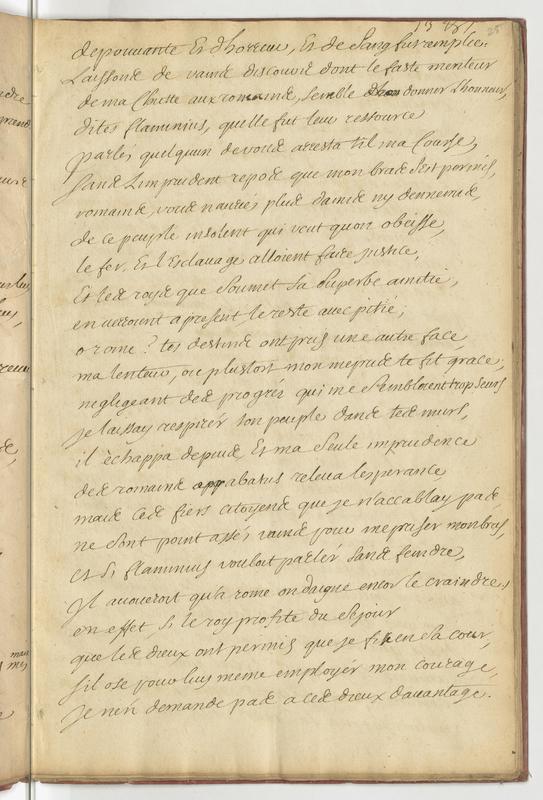 depouuante Et dhorreur, Et de sang fut remplie.
Laissond de vaind discourd dont le faste menteur
de ma Chutte aux romaind, semble donner Lhonneur,
dites flaminius, quelle fut leur ressource
parlés quelquun de voud arresta t'il ma Course,
Sand L'imprudent repod que mon brad s'est permis,
romaind, voud n'auriés plud d'amid ny dennemid
de ce peuple insolent qui veut quon obeisse,
le fer, Et l'Esclauage alloient faire justice,
Et led royd que soumet sa superbe amitié,
en uerroient apresent le reste auec pitié;
o rome? tes destind ont pris une autre face,
ma lenteur, ou plustost mon meprid te fit grace,
negligeant ded progrés qui me sembloient trop seurs
je laissay respirér ton peuple dand ted murs,
il échappa depuid Et ma seule imprudence
ded romaind abatus releua l'esperance
maid ced fiers citoyend que je n'accablay pad
ne sont point assés vaind pour mepriser mon bras,
Et si flaminius vouloit parlér sand feindre,
Il auoueroit qu'a rome on daigne encor le craindre,
en effet, si le roy profite du sejour
que led dieux ont permis que je fis en sa cour,
s'il ose pour luy meme employér mon courage,
Je n'en demande pad a ced dieux dauantage.